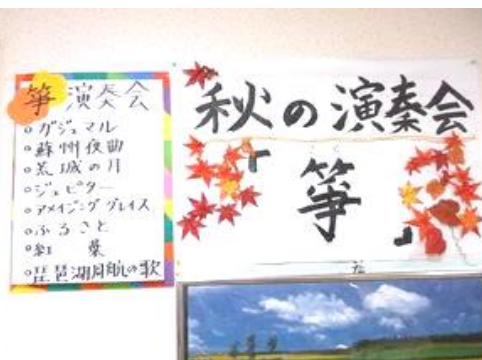 箏演奏会
。ガジュマル
。蘇州夜曲
。荒城の月
。ジュピター
。アメイジンググレイス
。ふるさと
。紅葉
。琵琶湖周航の歌
秋の演奏会
「箏」